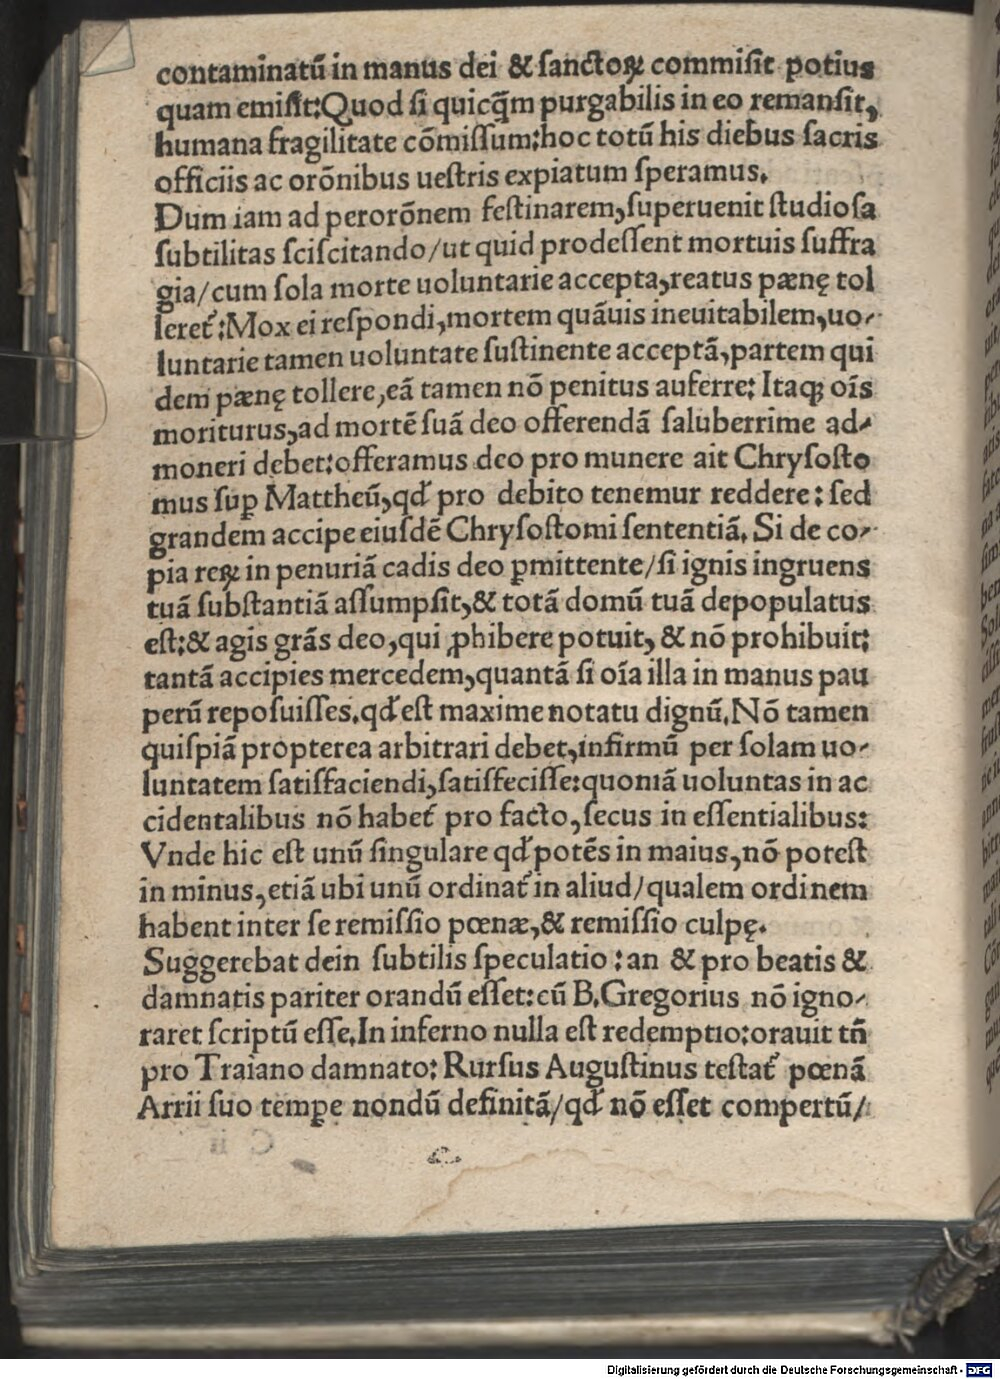 contaminatū in manus dei & sanctoꝝ commisit potius
quam emisit:Quod si quicq̄m purgabilis in eo remansit,
humana fragilitate cōmissum:hoc totū his diebus sacris
officiis ac orōnibus uestris expiatum speramus.
Dum iam ad perorōnem festinarem,superuenit studiosa
subtilitas sciscitando/ut quid prodessent mortuis suffra
gia/cum sola morte uoluntarie accepta,reatus pænę tol
leret᷑:Mox ei respondi,mortem quāuis ineuitabilem,uo-
luntarie tamen uoluntate sustinente acceptā,partem qui
dem pænę tollere,eā tamen nō penitus auferre: Itaqꝫ oīs
moriturus,ad mortē suā deo offerendā saluberrime ad-
moneri debet:offeramus deo pro munere ait Chrysosto
mus suꝑ Mattheū,qđ pro debito tenemur reddere: sed
grandem accipe eiusdē Chrysostomi sententiā. Si de co-
pia reꝝ in penuriā cadis deo ꝑmittente/si ignis ingruens
tuā substantiā assumpsit,& totā domū tuā depopulatus
est:& agis grās deo,qui ꝓhibere potuit, & nō prohibuit:
tantā accipies mercedem,quantā si oīa illa in manus pau
perū reposuisses.qđ est maxime notatu dignū.Nō tamen
quispiā propterea arbitrari debet,infirmū per solam uo-
luntatem satisfaciendi,satisfecisse:quoniā uoluntas in ac
cidentalibus nō habet᷑ pro facto,secus in essentialibus:
Vnde hic est unū singulare qđ potēs in maius,nō potest
in minus,etiā ubi unū ordinat᷑ in aliud/qualem ordinem
habent inter se remissio pœnæ,& remissio culpę.
Suggerebat dein subtilis speculatio: an & pro beatis &
damnatis pariter orandū esset:cū B.Gregorius nō igno-
raret scriptū esse.In inferno nulla est redemptio:orauit tn̄
pro Traiano damnato: Rursus Augustinus testat᷑ pœnā
Arrii suo tempe̱ nondū definitā/qđ nō esset compertū/
Digitalisierung gefördert durch die Deutsche Forschungsgemeinschaft - DFG